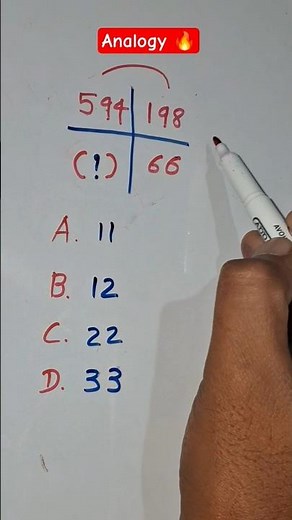 Analogy 🔥
594 198
(!) 66
A. 11
B. 12
C. 22
D. 33